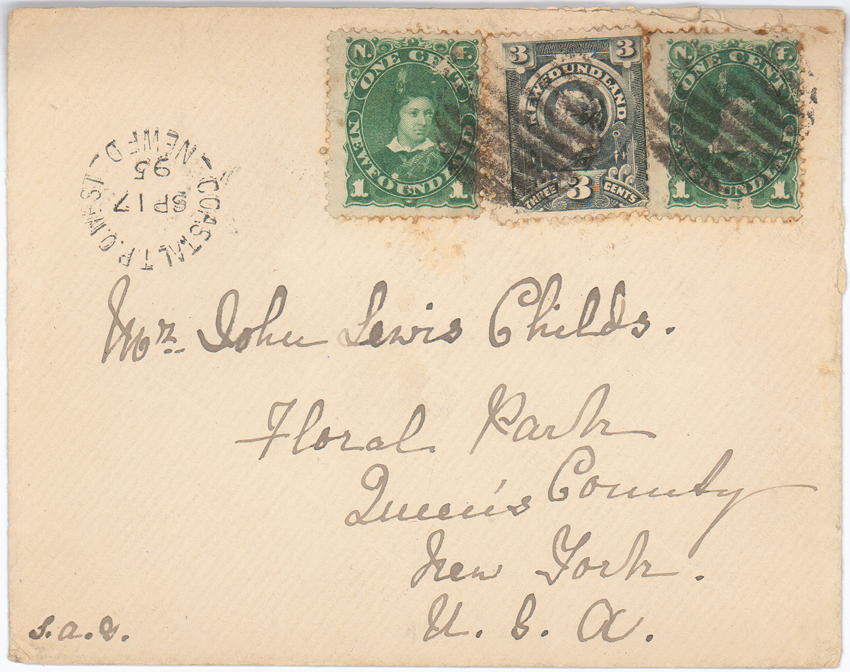 N. F.
ONE CENT
NEWFOUNDLAND
1 1
3 3
NEWFOUNDLAND
THREE 3 CENTS
N. F.
ONE CENT
NEWFOUNDLAND
1 1
COASTAL T.P.O. WEST
SP 17
95
NEWFD
Mr. John Lewis Childs.
Floral Park
Queen's County
New York.
U. S. A.